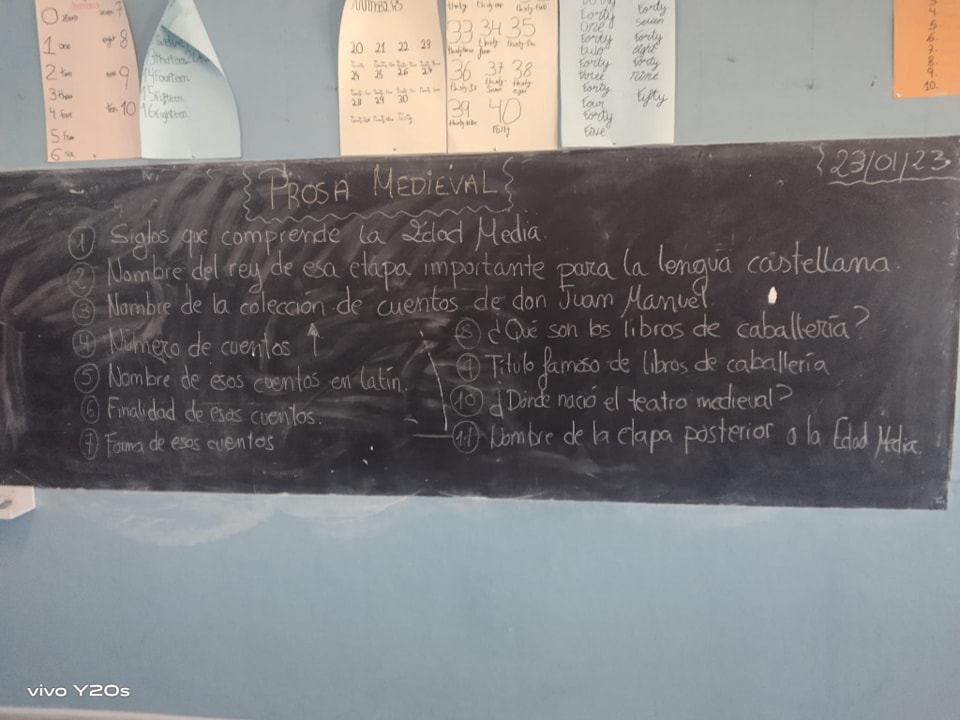 0 Zero
1 one
2 two
3 three
4 four
5 Five
6 six
7
eight 8
9
ten 10
14 Fourteen
15 Fifteen
16 Eighteen
NUMBERS
20 21 22 23
24 25 26 27
28 29 30
33 34 35
36 37 38
39 40
Forty
Forty
one
Forty
two
Forty
three
Forty
Four
Forty
Five
Forty
seven
Forty
eight
Forty
nine
Fifty
4.
5.
6.
7.
8.
9.
10.
23/01/23
PROSA MEDIEVAL
1 Siglos que comprende la Edad Media.
2 Nombre del rey de esa etapa importante para la lengua castellana.
3 Nombre de la colección de cuentos de don Juan Manuel.
4 Número de cuentos ↑
5 Nombre de esos cuentos en latín.
6 Finalidad de esos cuentos.
7 Forma de esos cuentos
8 ¿Qué son los libros de caballería?
9 Título famoso de libros de caballería
10 ¿Dónde nació el teatro medieval?
11 Nombre de la etapa posterior a la Edad Media.
vivo Y20s